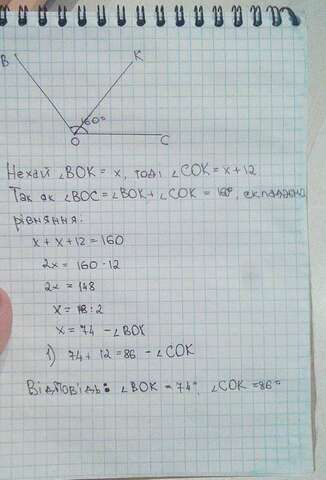 B K
160°
O C
Нехай ∠BOK = x, тоді ∠COK = x + 12
Так як ∠BOC = ∠BOK + ∠COK = 160°, складаємо
рівняння:
x + x + 12 = 160
2x = 160 - 12
2x = 148
x = 148 : 2
x = 74 - ∠BOK
1) 74 + 12 = 86 - ∠COK
Відповідь: ∠BOK = 74°, ∠COK = 86°